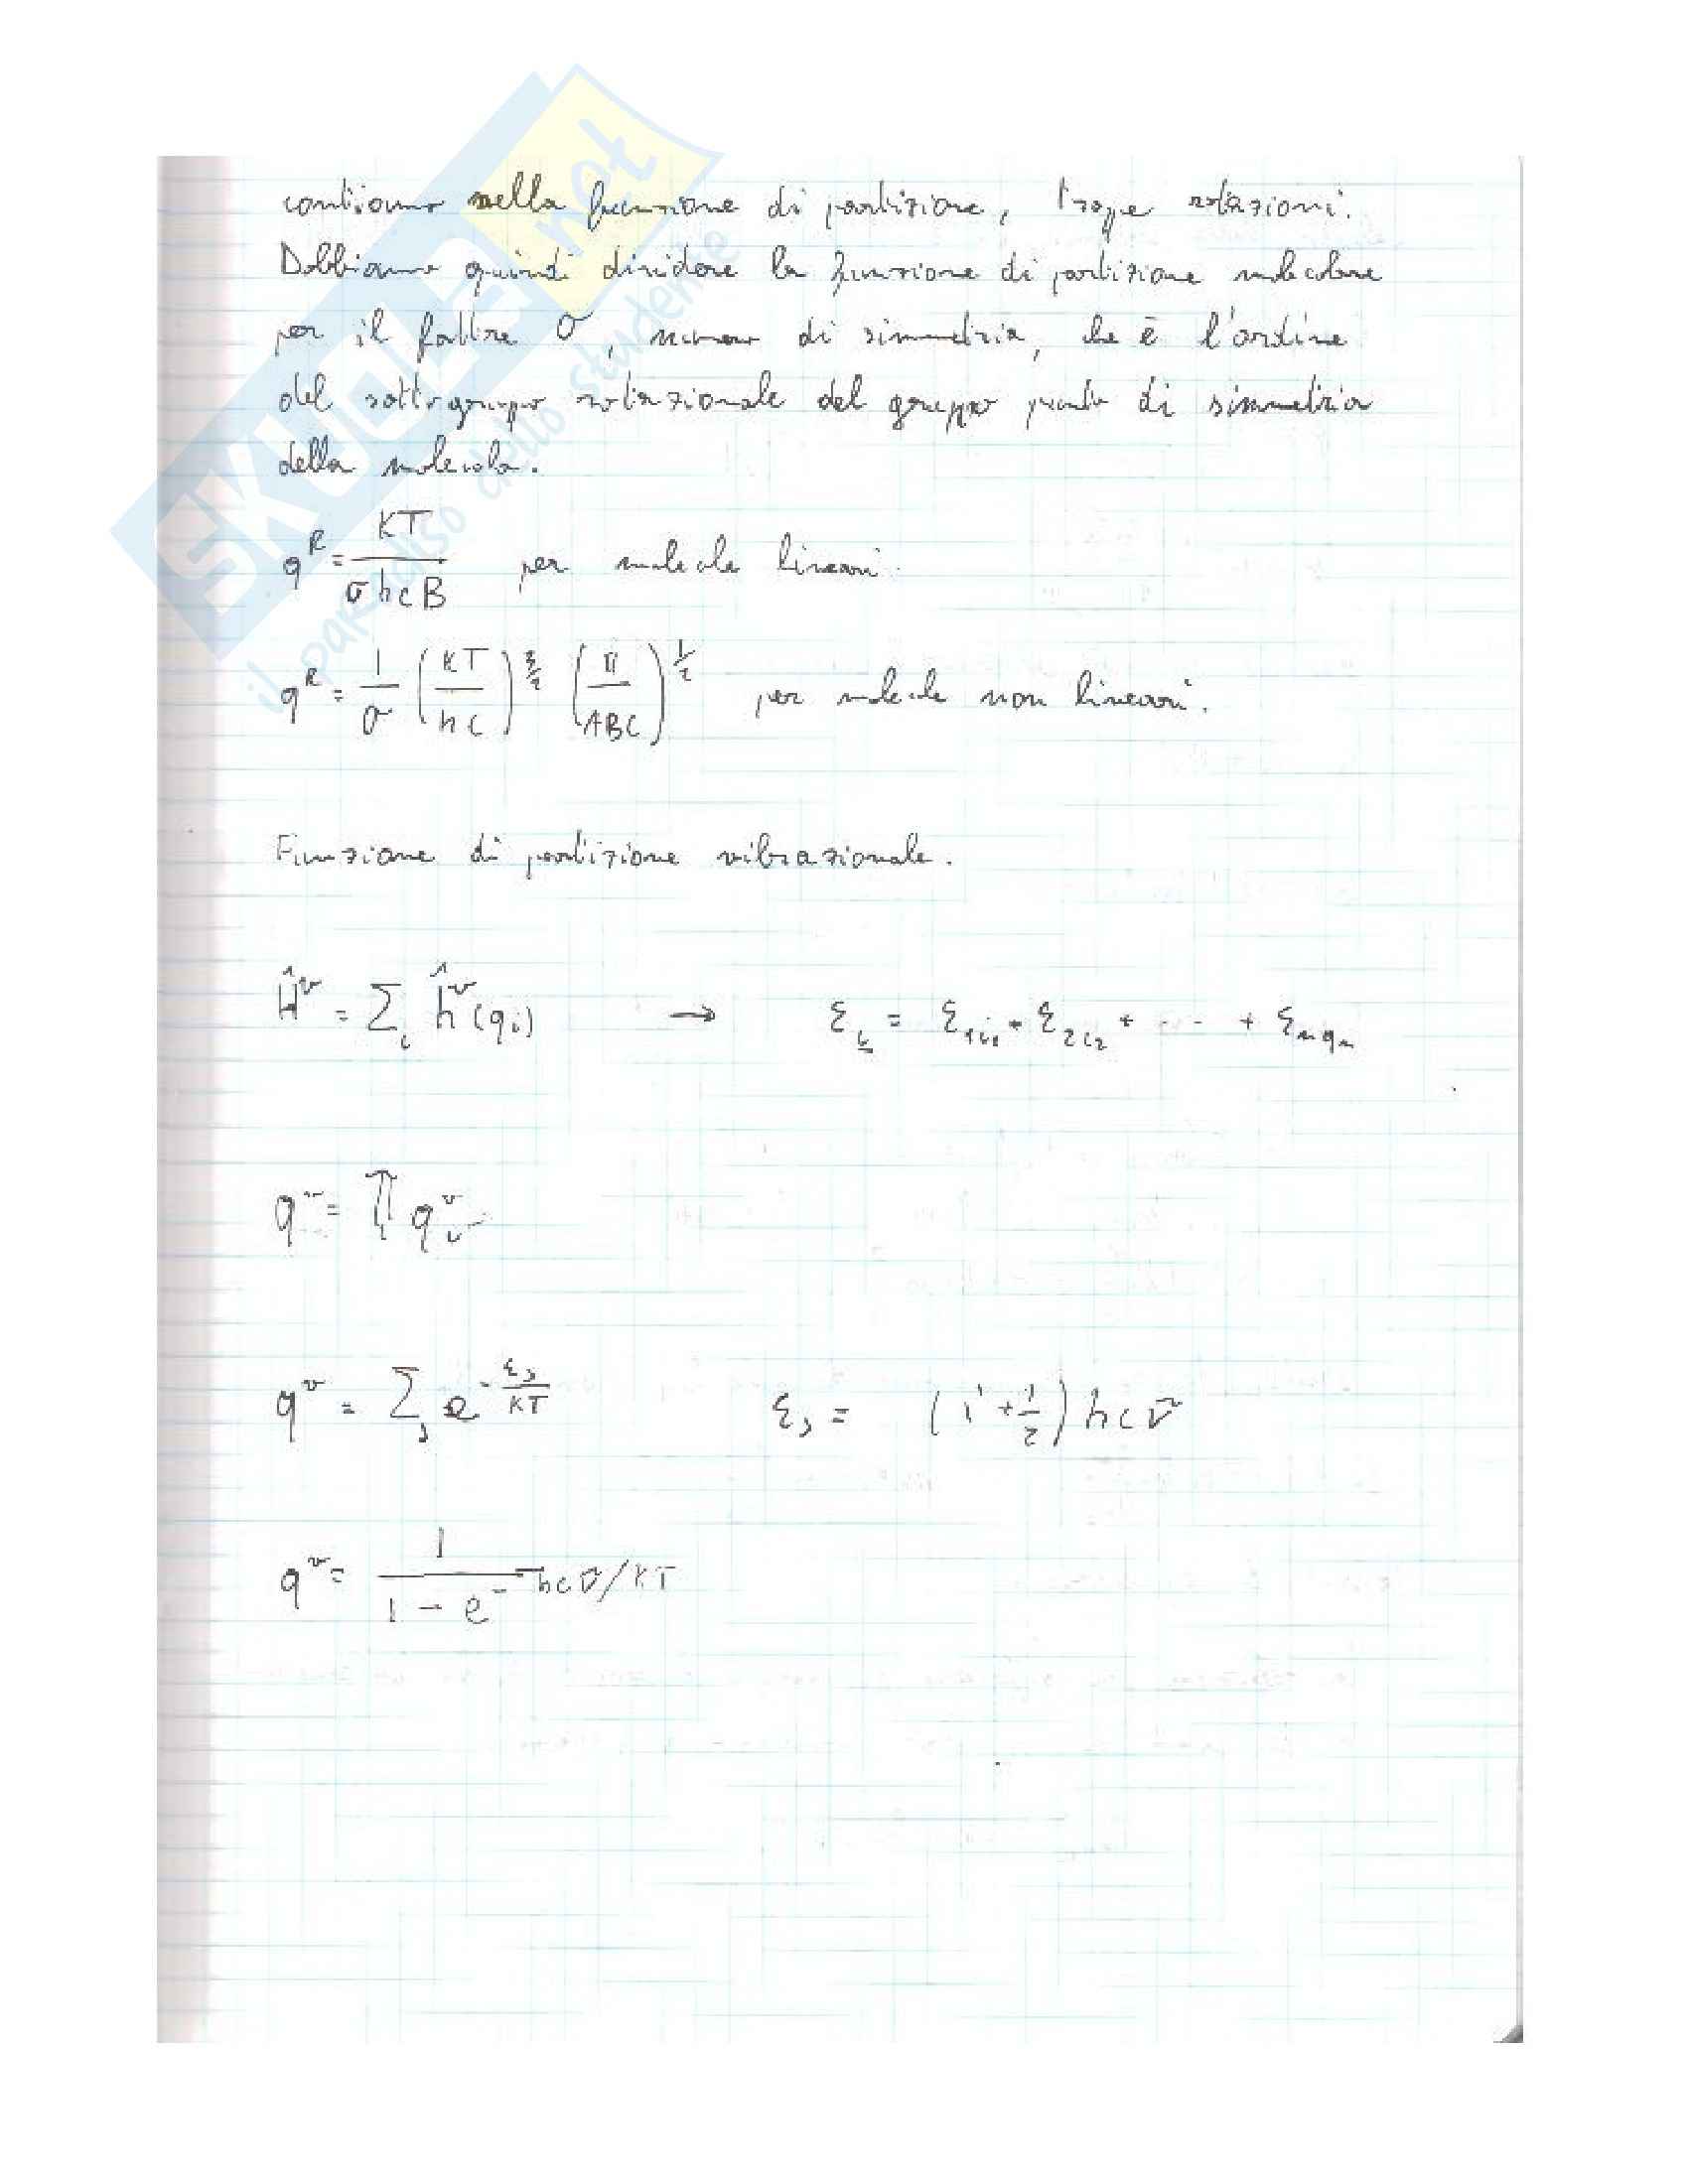 contiamo nella funzione di partizione, troppe rotazioni.
Dobbiamo quindi dividere la funzione di partizione molecolare
per il fattore σ, numero di simmetria, che è l'ordine
del sottogruppo rotazionale del gruppo punto di simmetria
della molecola.
q^R = KT / σhcB per molecole lineari.
q^R = 1/σ (KT/hc)^(3/2) (π/ABC)^(1/2) per molecole non lineari.
Funzione di partizione vibrazionale.
Ĥ^v = Σ_i ĥ^v(q_i) → ε_i = ε_1i₁ + ε_2i₂ + ... + ε_nq_n
q^v = Π_i q_i^v
q^v = Σ_j e^(-ε_j/KT) ε_j = (i + 1/2) hcν̃
q^v = 1 / (1 - e^(-hcν̃/KT))
SKUOLA.net
il paradiso dello studente